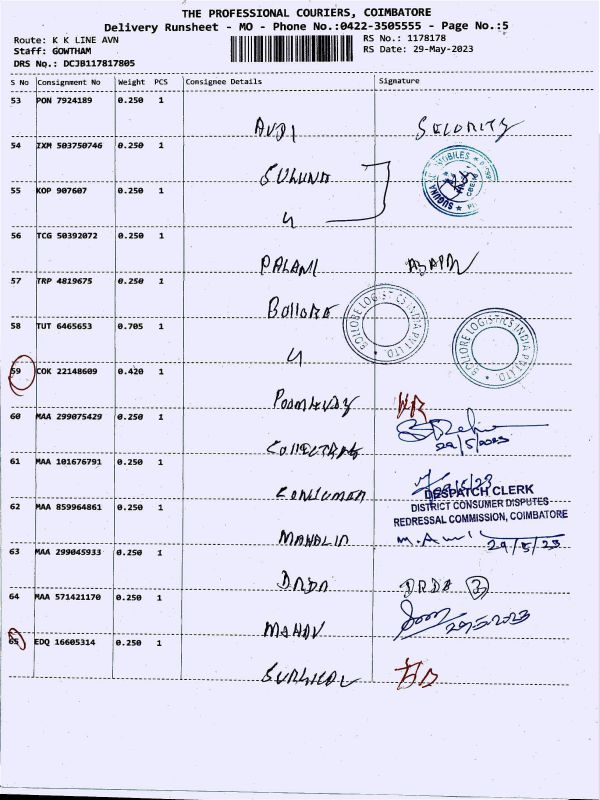 THE PROFESSIONAL COURIERS, COIMBATORE
Delivery Runsheet - MO - Phone No.:0422-3505555 - Page No.:5
Route: K K LINE AVN
RS No.: 1178178
Staff: GOWTHAM
RS Date: 29-May-2023
DRS No.: DCJB117817805
S No Consignment No Weight PCS Consignee Details Signature
53 PON 7924189 0.250 1
AUDI SECURITY
54 IXM 503750746 0.250 1
SUGUNA
55 KOP 907607 0.250 1
56 TCG 50392072 0.250 1
PALANI
57 TRP 4819675 0.250 1
Bollore
BOLLORE LOGISTICS INDIA PVT LTD.
58 TUT 6465653 0.705 1
BOLLORE LOGISTICS INDIA PVT LTD.
59 COK 22148609 0.420 1
60 MAA 299075429 0.250 1
29/5/2023
61 MAA 101676791 0.250 1
CONSUMER
DESPATCH CLERK
DISTRICT CONSUMER DISPUTES
REDRESSAL COMMISSION, COIMBATORE
62 MAA 859964861 0.250 1
29/5/23
63 MAA 299045933 0.250 1
DRDA DRDA 3
64 MAA 571421170 0.250 1
29-5-2023
65 EDQ 16605314 0.250 1
SURGICAL